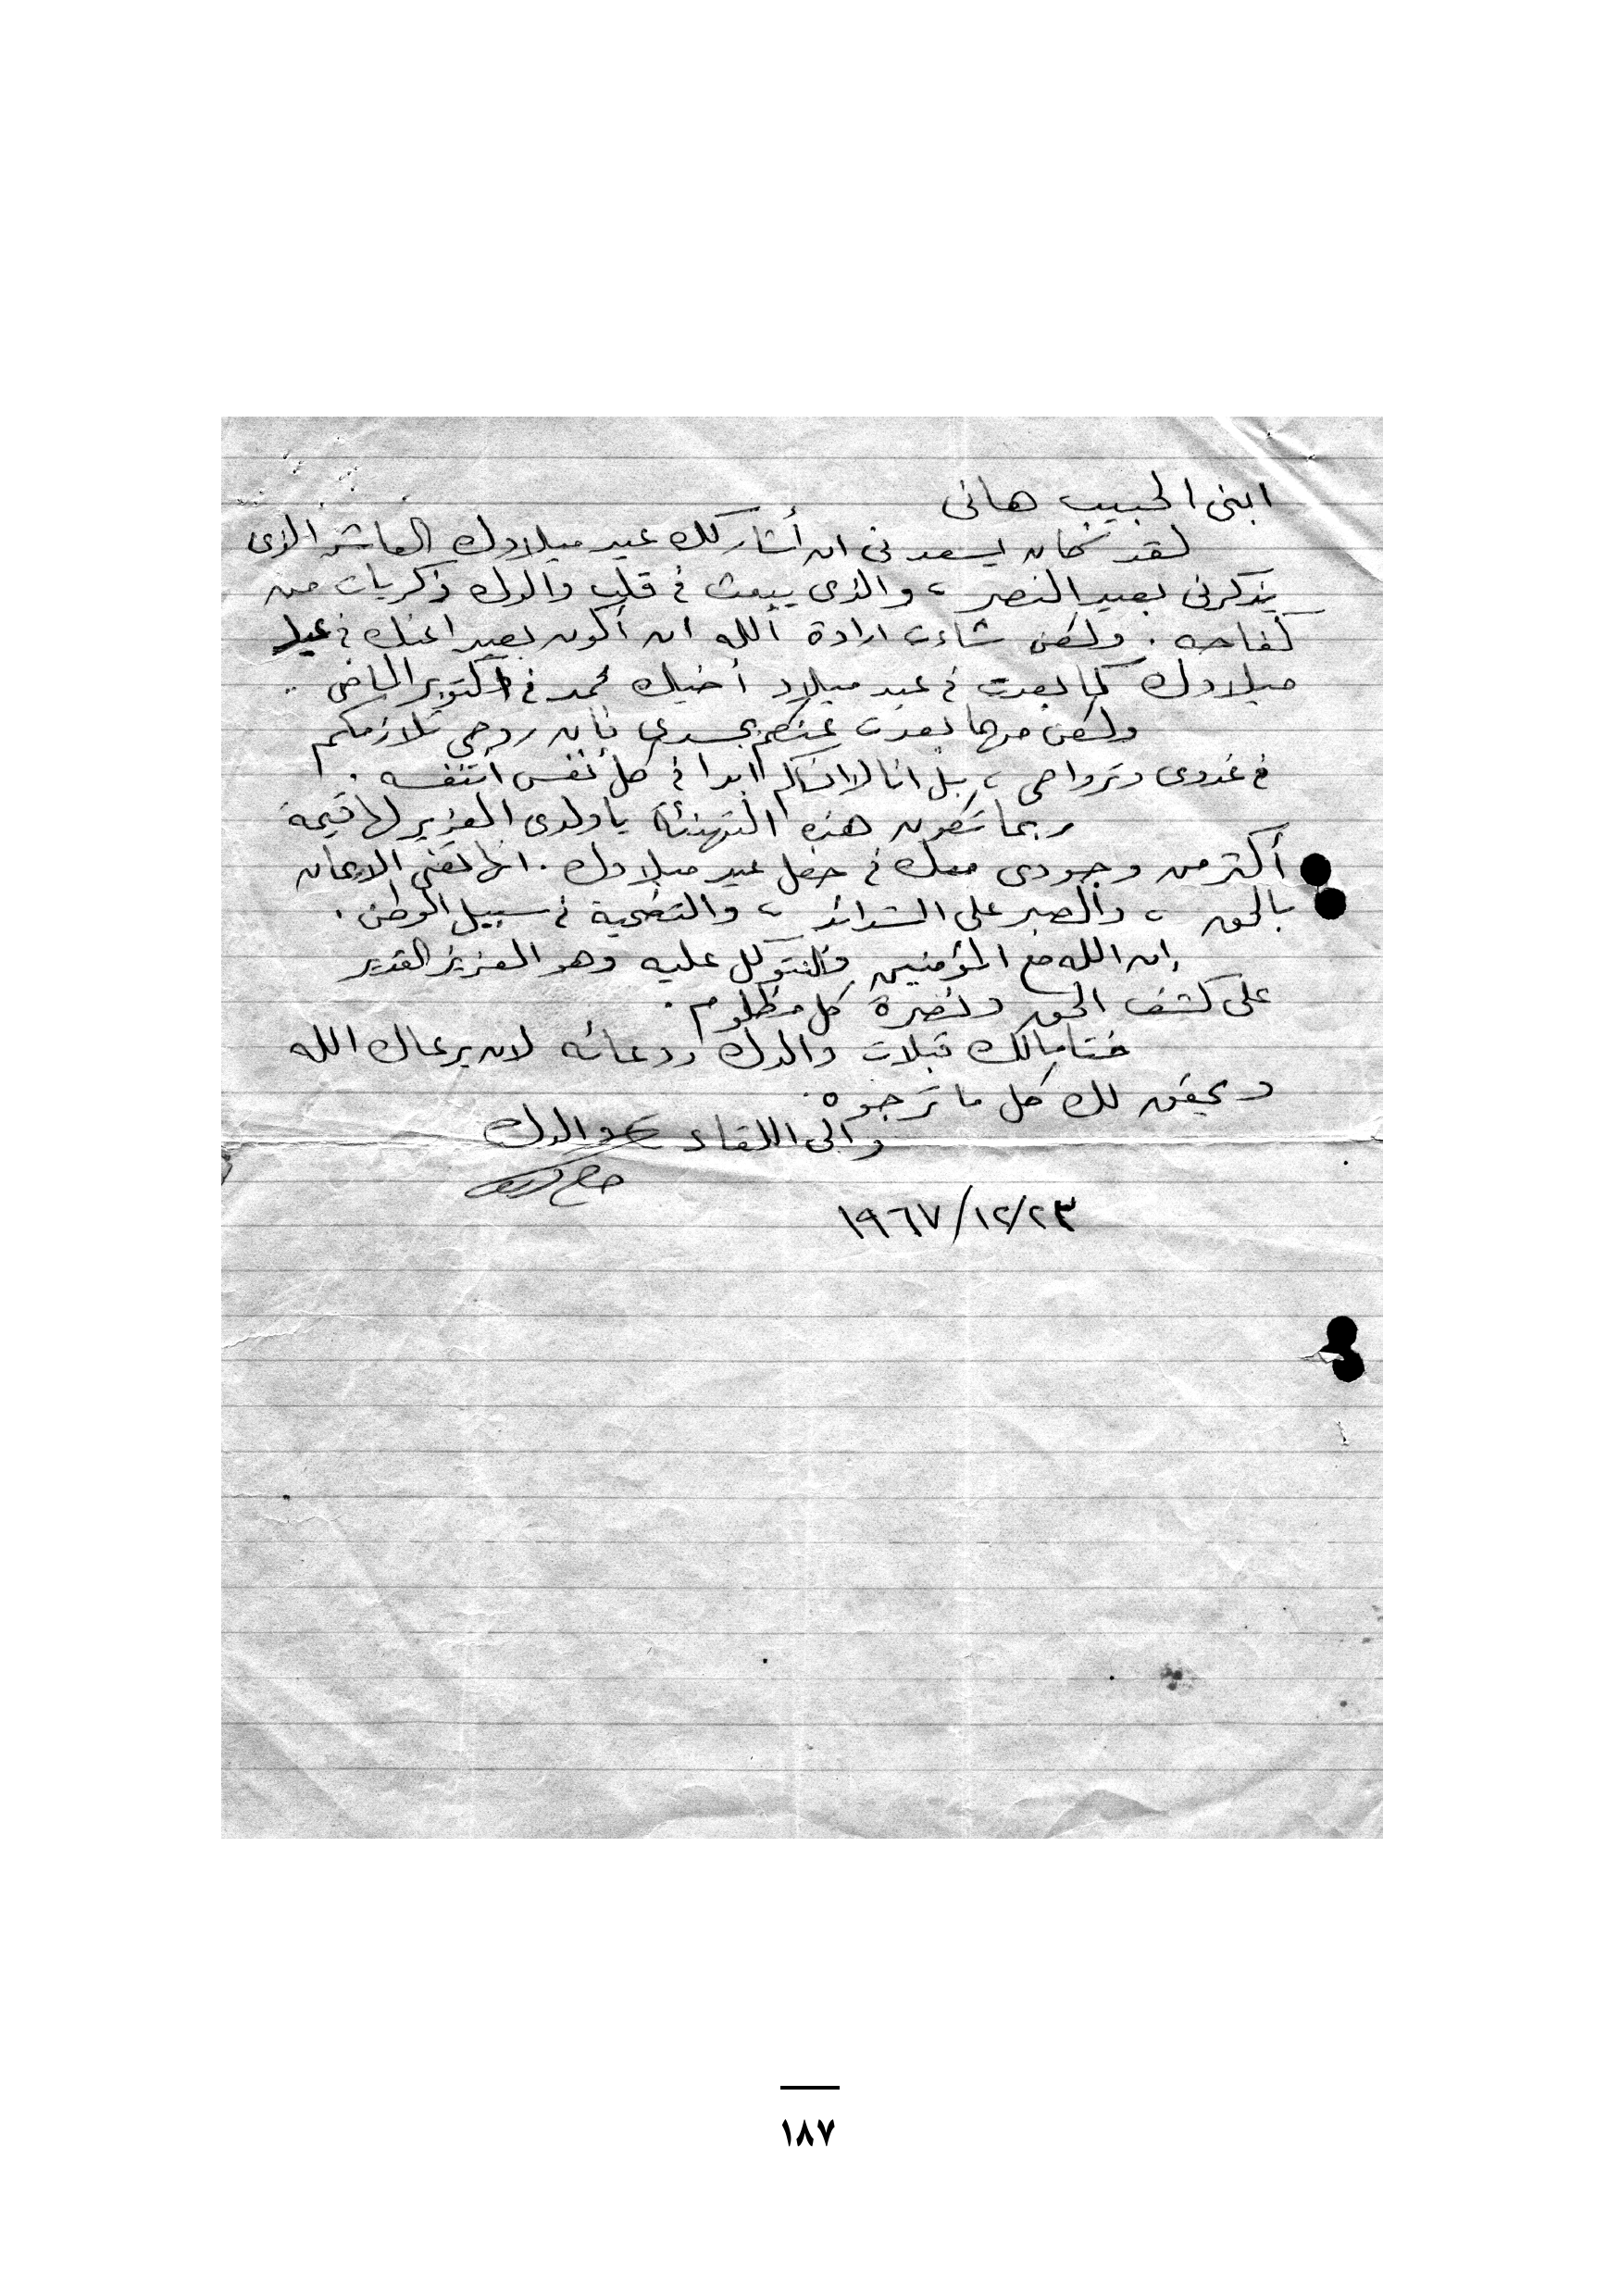 ابنى الحبيب هانى
لقد كان يسعدنى ان أشاركك عيد ميلادك العاشر الذى
يذكرنى بعيد النصر ، والذى يبعث فى قلب والدك ذكريات من
كفاحه . ولكن شاءت ارادة الله ان أكون بعيدا عنك فى عيد
ميلادك كما بعدت فى عيد ميلاد أخيك محمد فى اكتوبر الماضى ..
ولكن مهما بعدت عنكم بجسدى فان روحى تلازمكم
فى غدوى وترواحى ، بل انا لا انساكم ابدا فى كل نفس أتنفسه .
ربما تكون هذه التهنئة يا ولدى العزيز لها قيمة
أكثر من وجودى معك فى حفل عيد ميلادك . انها تعنى الايمان
بالحق ، والصبر على الشدائد ، والتضحية فى سبيل الوطن .
إن الله مع المؤمنين ولنتوكل عليه وهو العزيز القدير
على كشف الحق ونصرة كل مظلوم .
ختاما لك قبلات والدك ودعائه لان يرعاك الله
ويحقق لك كل ما ترجوه .
والى اللقاء والدك
١٩٦٧/١٢/٢٣
١٨٧